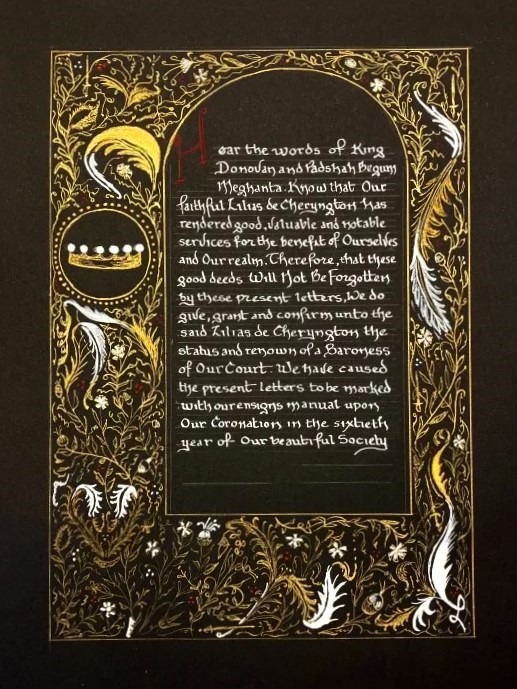 Hear the words of King
Donovan and Padshah Begum
Meghanta. Know that Our
faithful Lilias de Cheryngton has
rendered good, valuable and notable
services for the benefit of Ourselves
and Our realm. Therefore, that these
good deeds Will Not Be Forgotten
by these present letters, We do
give, grant and confirm unto the
said Lilias de Cheryngton the
status and renown of a Baroness
of Our Court. We have caused
the present letters to be marked
with our ensigns manual upon
Our Coronation in the sixtieth
year of Our beautiful Society